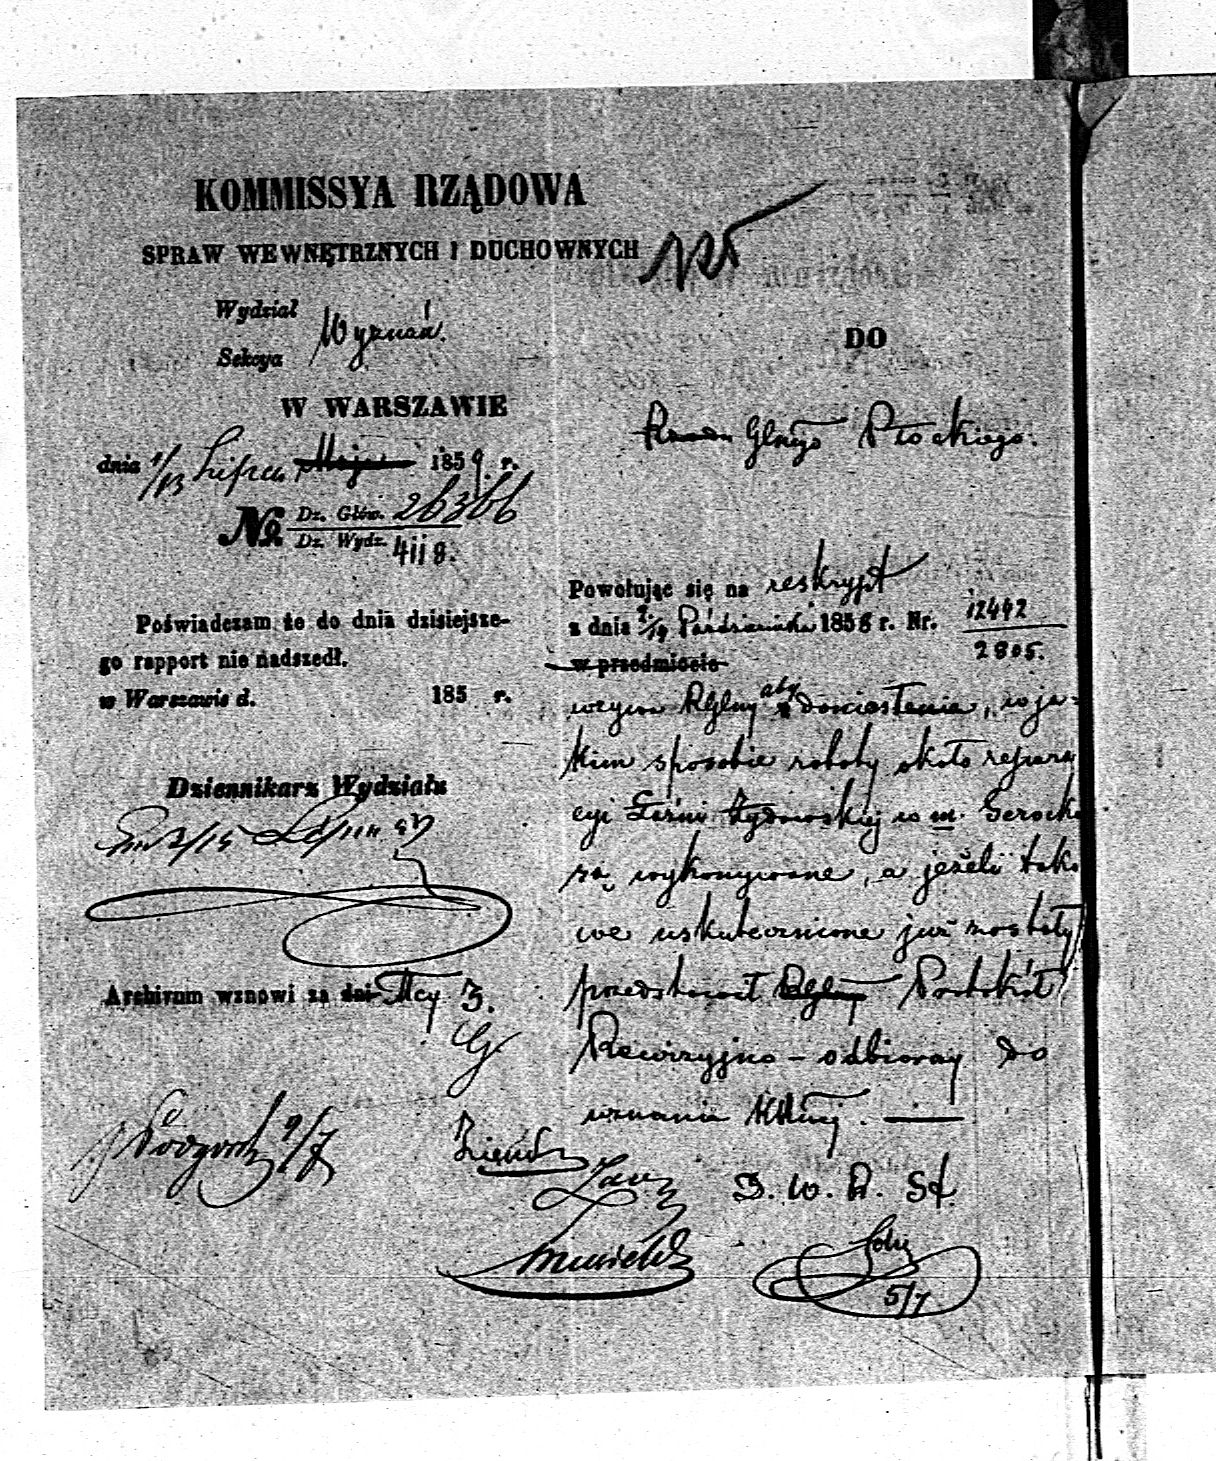 KOMMISSYA RZĄDOWA
SPRAW WEWNĘTRZNYCH I DUCHOWNYCH
Wydział
Wyznań.
Sekcya
W WARSZAWIE
dnia 1/13 Lipca Maja 1859 r.
No Dz. Głów. 26366
Dz. Wydz. 4118.
Poświadczam że do dnia dzisiejsze-
go rapport nie nadszedł.
w Warszawie d. 185 r.
Dziennikarz Wydziału
Archivum wznowi za dni Mcy 3.
DO
Glnego Płockiego.
Powołując się na reskrypt
z dnia 7/19 Października 1858 r. Nr. 12442
2805.
w przedmiocie
wzywa RGlny aby doniesienie, w ja-
kim sposobie roboty około repara
cyi Łaźni Żydowskiej w m. Serocku
są wykonywane, a jeżeli tako
we uskutecznione już zostały
przedstawił RGlny Protokół
Rewizyjno-odbiorczy do
uznania
D. W. R. St.
5/7